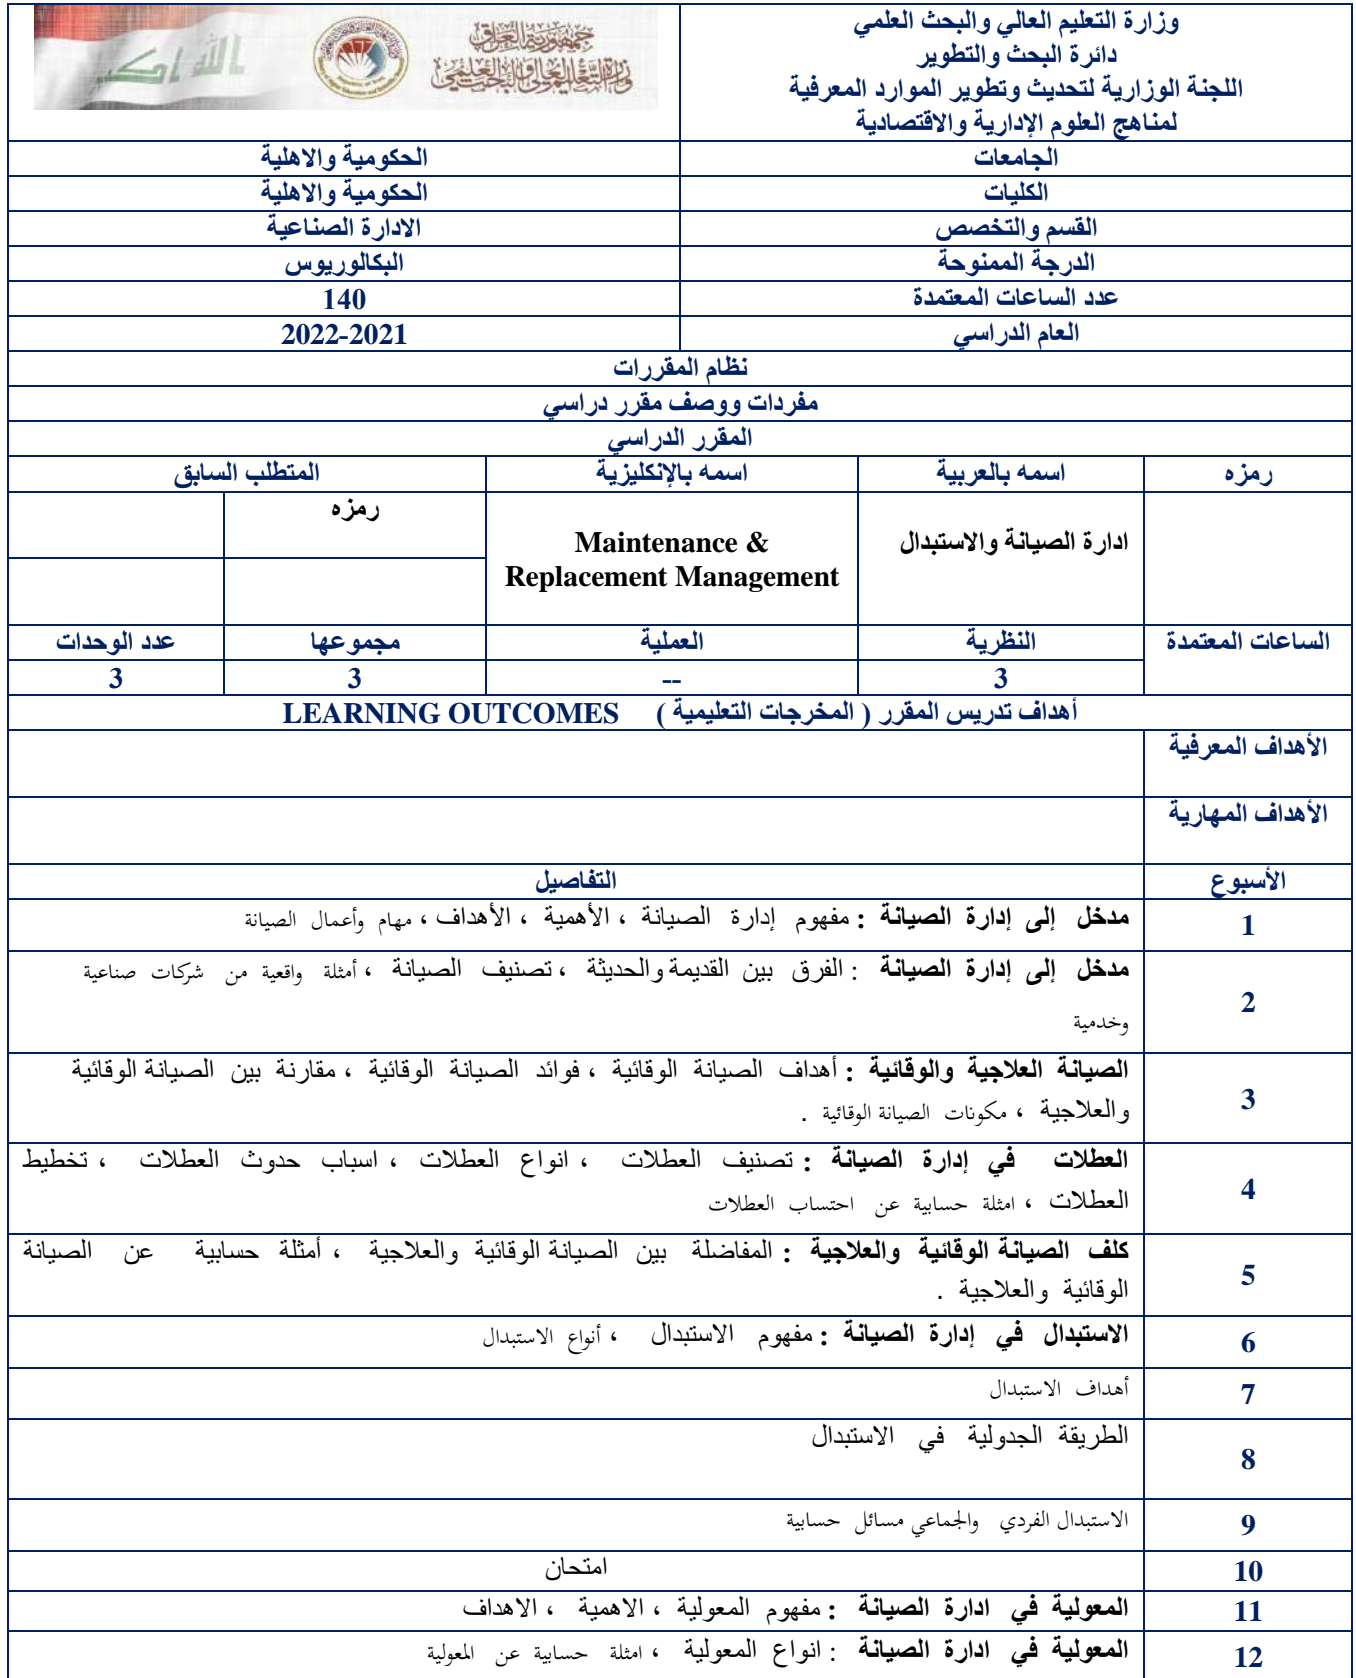 وزارة التعليم العالي والبحث العلمي
دائرة البحث والتطوير
اللجنة الوزارية لتحديث وتطوير الموارد المعرفية
لمناهج العلوم الإدارية والاقتصادية
جمهورية العراق
وزارة التعليم العالي والبحث العلمي
الله اكبر
الجامعات الحكومية والاهلية
الكليات الحكومية والاهلية
القسم والتخصص الادارة الصناعية
الدرجة الممنوحة البكالوريوس
عدد الساعات المعتمدة 140
العام الدراسي 2022-2021
نظام المقررات
مفردات ووصف مقرر دراسي
المقرر الدراسي
رمزه اسمه بالعربية اسمه بالإنكليزية المتطلب السابق
رمزه
ادارة الصيانة والاستبدال
Maintenance &
Replacement Management
الساعات المعتمدة النظرية العملية مجموعها عدد الوحدات
3 -- 3 3
أهداف تدريس المقرر ( المخرجات التعليمية ) LEARNING OUTCOMES
الأهداف المعرفية
الأهداف المهارية
الأسبوع التفاصيل
1 مدخل إلى إدارة الصيانة : مفهوم إدارة الصيانة ، الأهمية ، الأهداف ، مهام وأعمال الصيانة
2 مدخل إلى إدارة الصيانة : الفرق بين القديمة والحديثة ، تصنيف الصيانة ، أمثلة واقعية من شركات صناعية
وخدمية
3 الصيانة العلاجية والوقائية : أهداف الصيانة الوقائية ، فوائد الصيانة الوقائية ، مقارنة بين الصيانة الوقائية
والعلاجية ، مكونات الصيانة الوقائية .
4 العطلات في إدارة الصيانة : تصنيف العطلات ، انواع العطلات ، اسباب حدوث العطلات ، تخطيط
العطلات ، امثلة حسابية عن احتساب العطلات
5 كلف الصيانة الوقائية والعلاجية : المفاضلة بين الصيانة الوقائية والعلاجية ، أمثلة حسابية عن الصيانة
الوقائية والعلاجية .
6 الاستبدال في إدارة الصيانة : مفهوم الاستبدال ، أنواع الاستبدال
7 أهداف الاستبدال
8 الطريقة الجدولية في الاستبدال
9 الاستبدال الفردي والجماعي مسائل حسابية
10 امتحان
11 المعولية في ادارة الصيانة : مفهوم المعولية ، الاهمية ، الاهداف
12 المعولية في ادارة الصيانة : انواع المعولية ، امثلة حسابية عن المعولية